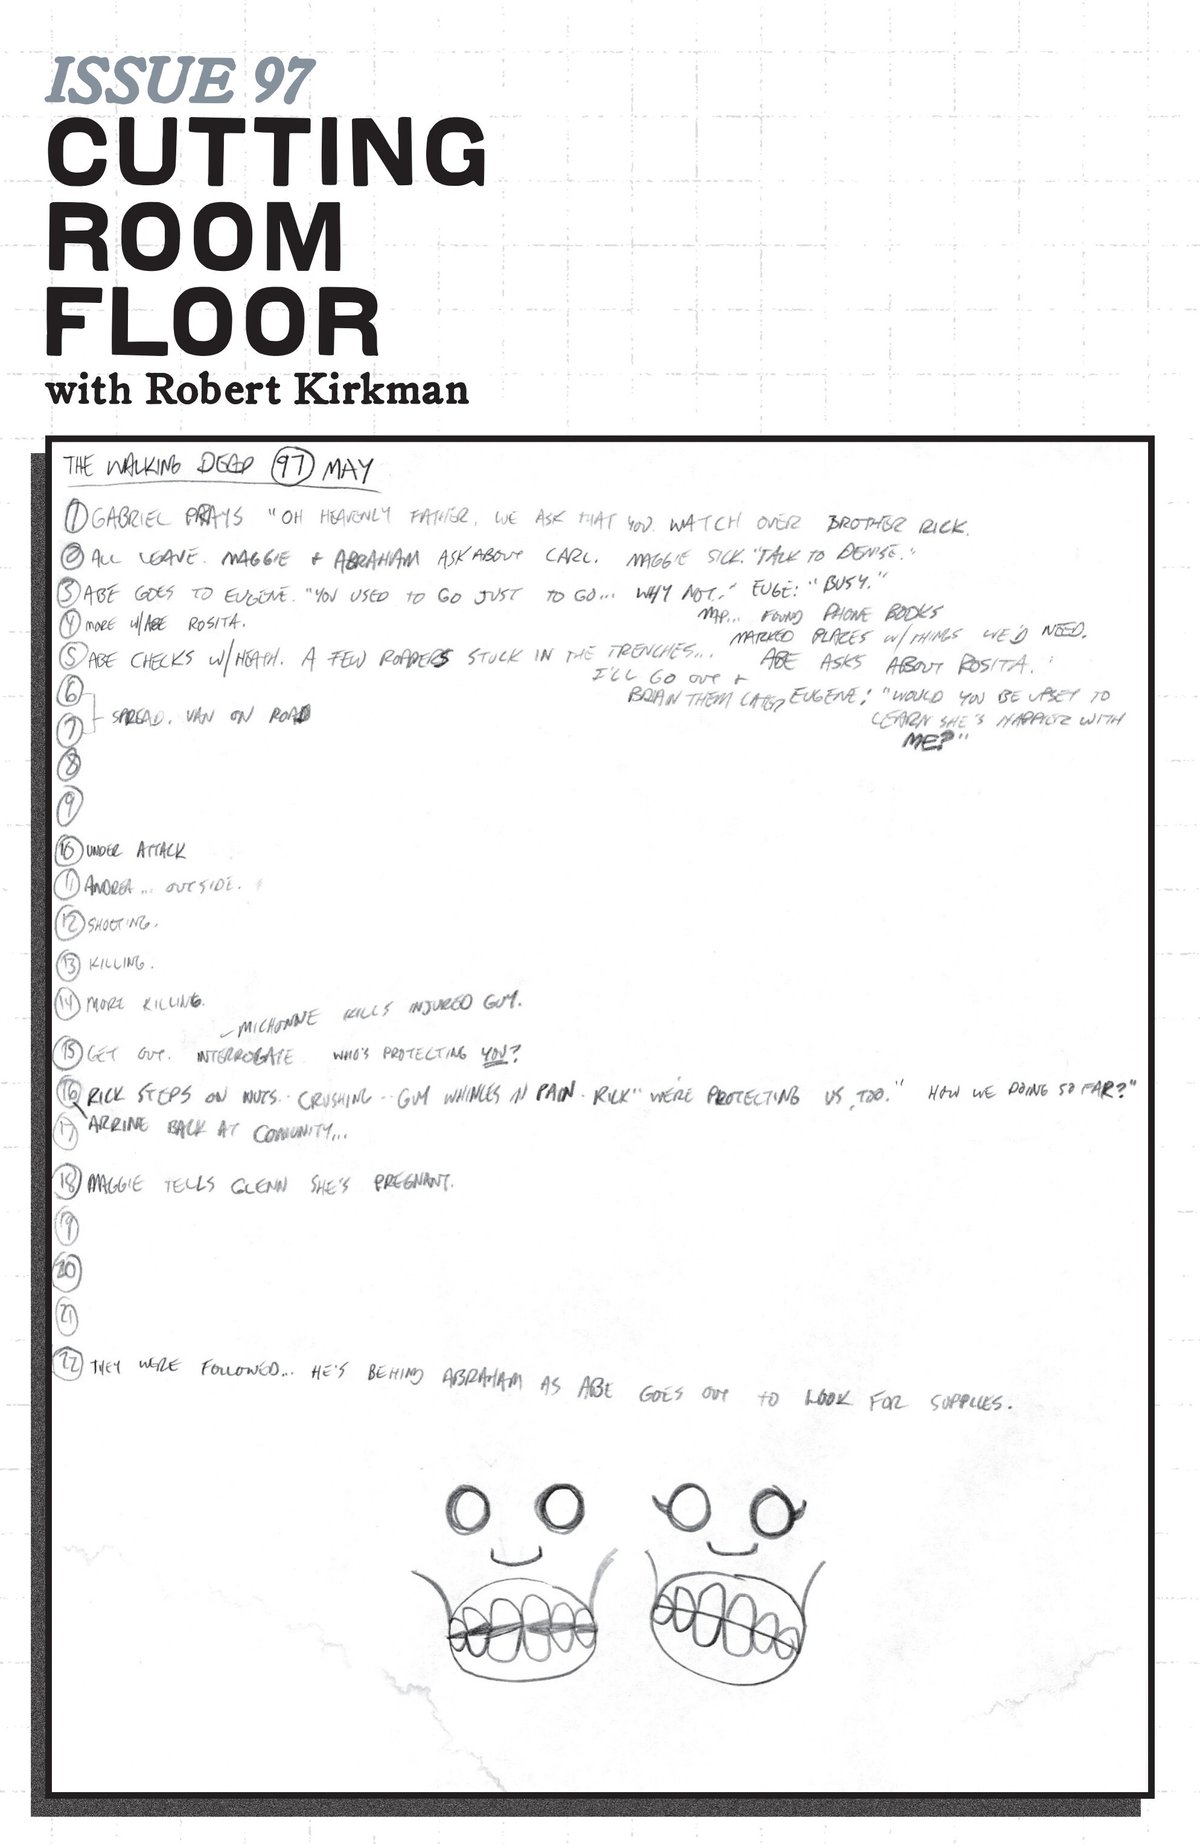 ISSUE 97
CUTTING
ROOM
FLOOR
with Robert Kirkman
THE WALKING DEAD 97 MAY
1 GABRIEL PRAYS "OH HEAVENLY FATHER, WE ASK THAT YOU WATCH OVER BROTHER RICK.
2 ALL LEAVE. MAGGIE + ABRAHAM ASK ABOUT CARL. MAGGIE SICK. "TALK TO DENISE."
3 ABE GOES TO EUGENE. "YOU USED TO GO JUST TO GO... WHY NOT." EUGE: "BUSY."
MAP... FOUND PHONE BOOKS
4 MORE W/ABE ROSITA.
MARKED PLACES W/THINGS WE'D NEED.
5 ABE CHECKS W/HEATH. A FEW ROAMERS STUCK IN THE TRENCHES...
ABE ASKS ABOUT ROSITA.
I'LL GO OUT +
BRAIN THEM LATER
EUGENE: "WOULD YOU BE UPSET TO
LEARN SHE'S HAPPIER WITH
ME?"
6
7 SPREAD. VAN ON ROAD
8
9
10 UNDER ATTACK
11 ANDREA... OUTSIDE.
12 SHOOTING.
13 KILLING.
14 MORE KILLING.
MICHONNE KILLS INJURED GUY.
15 GET OUT. INTERROGATE WHO'S PROTECTING YOU?
16 RICK STEPS ON NUTS.. CRUSHING.. GUY WHINCES IN PAIN. RICK" WE'RE PROTECTING US, TOO." HOW WE DOING SO FAR?"
17 ARRINE BACK AT COMUNITY...
18 MAGGIE TELLS GLENN SHE'S PREGNANT.
19
20
21
22 THEY WERE FOLLOWED... HE'S BEHIND ABRAHAM AS ABE GOES OUT TO LOOK FOR SUPPLIES.